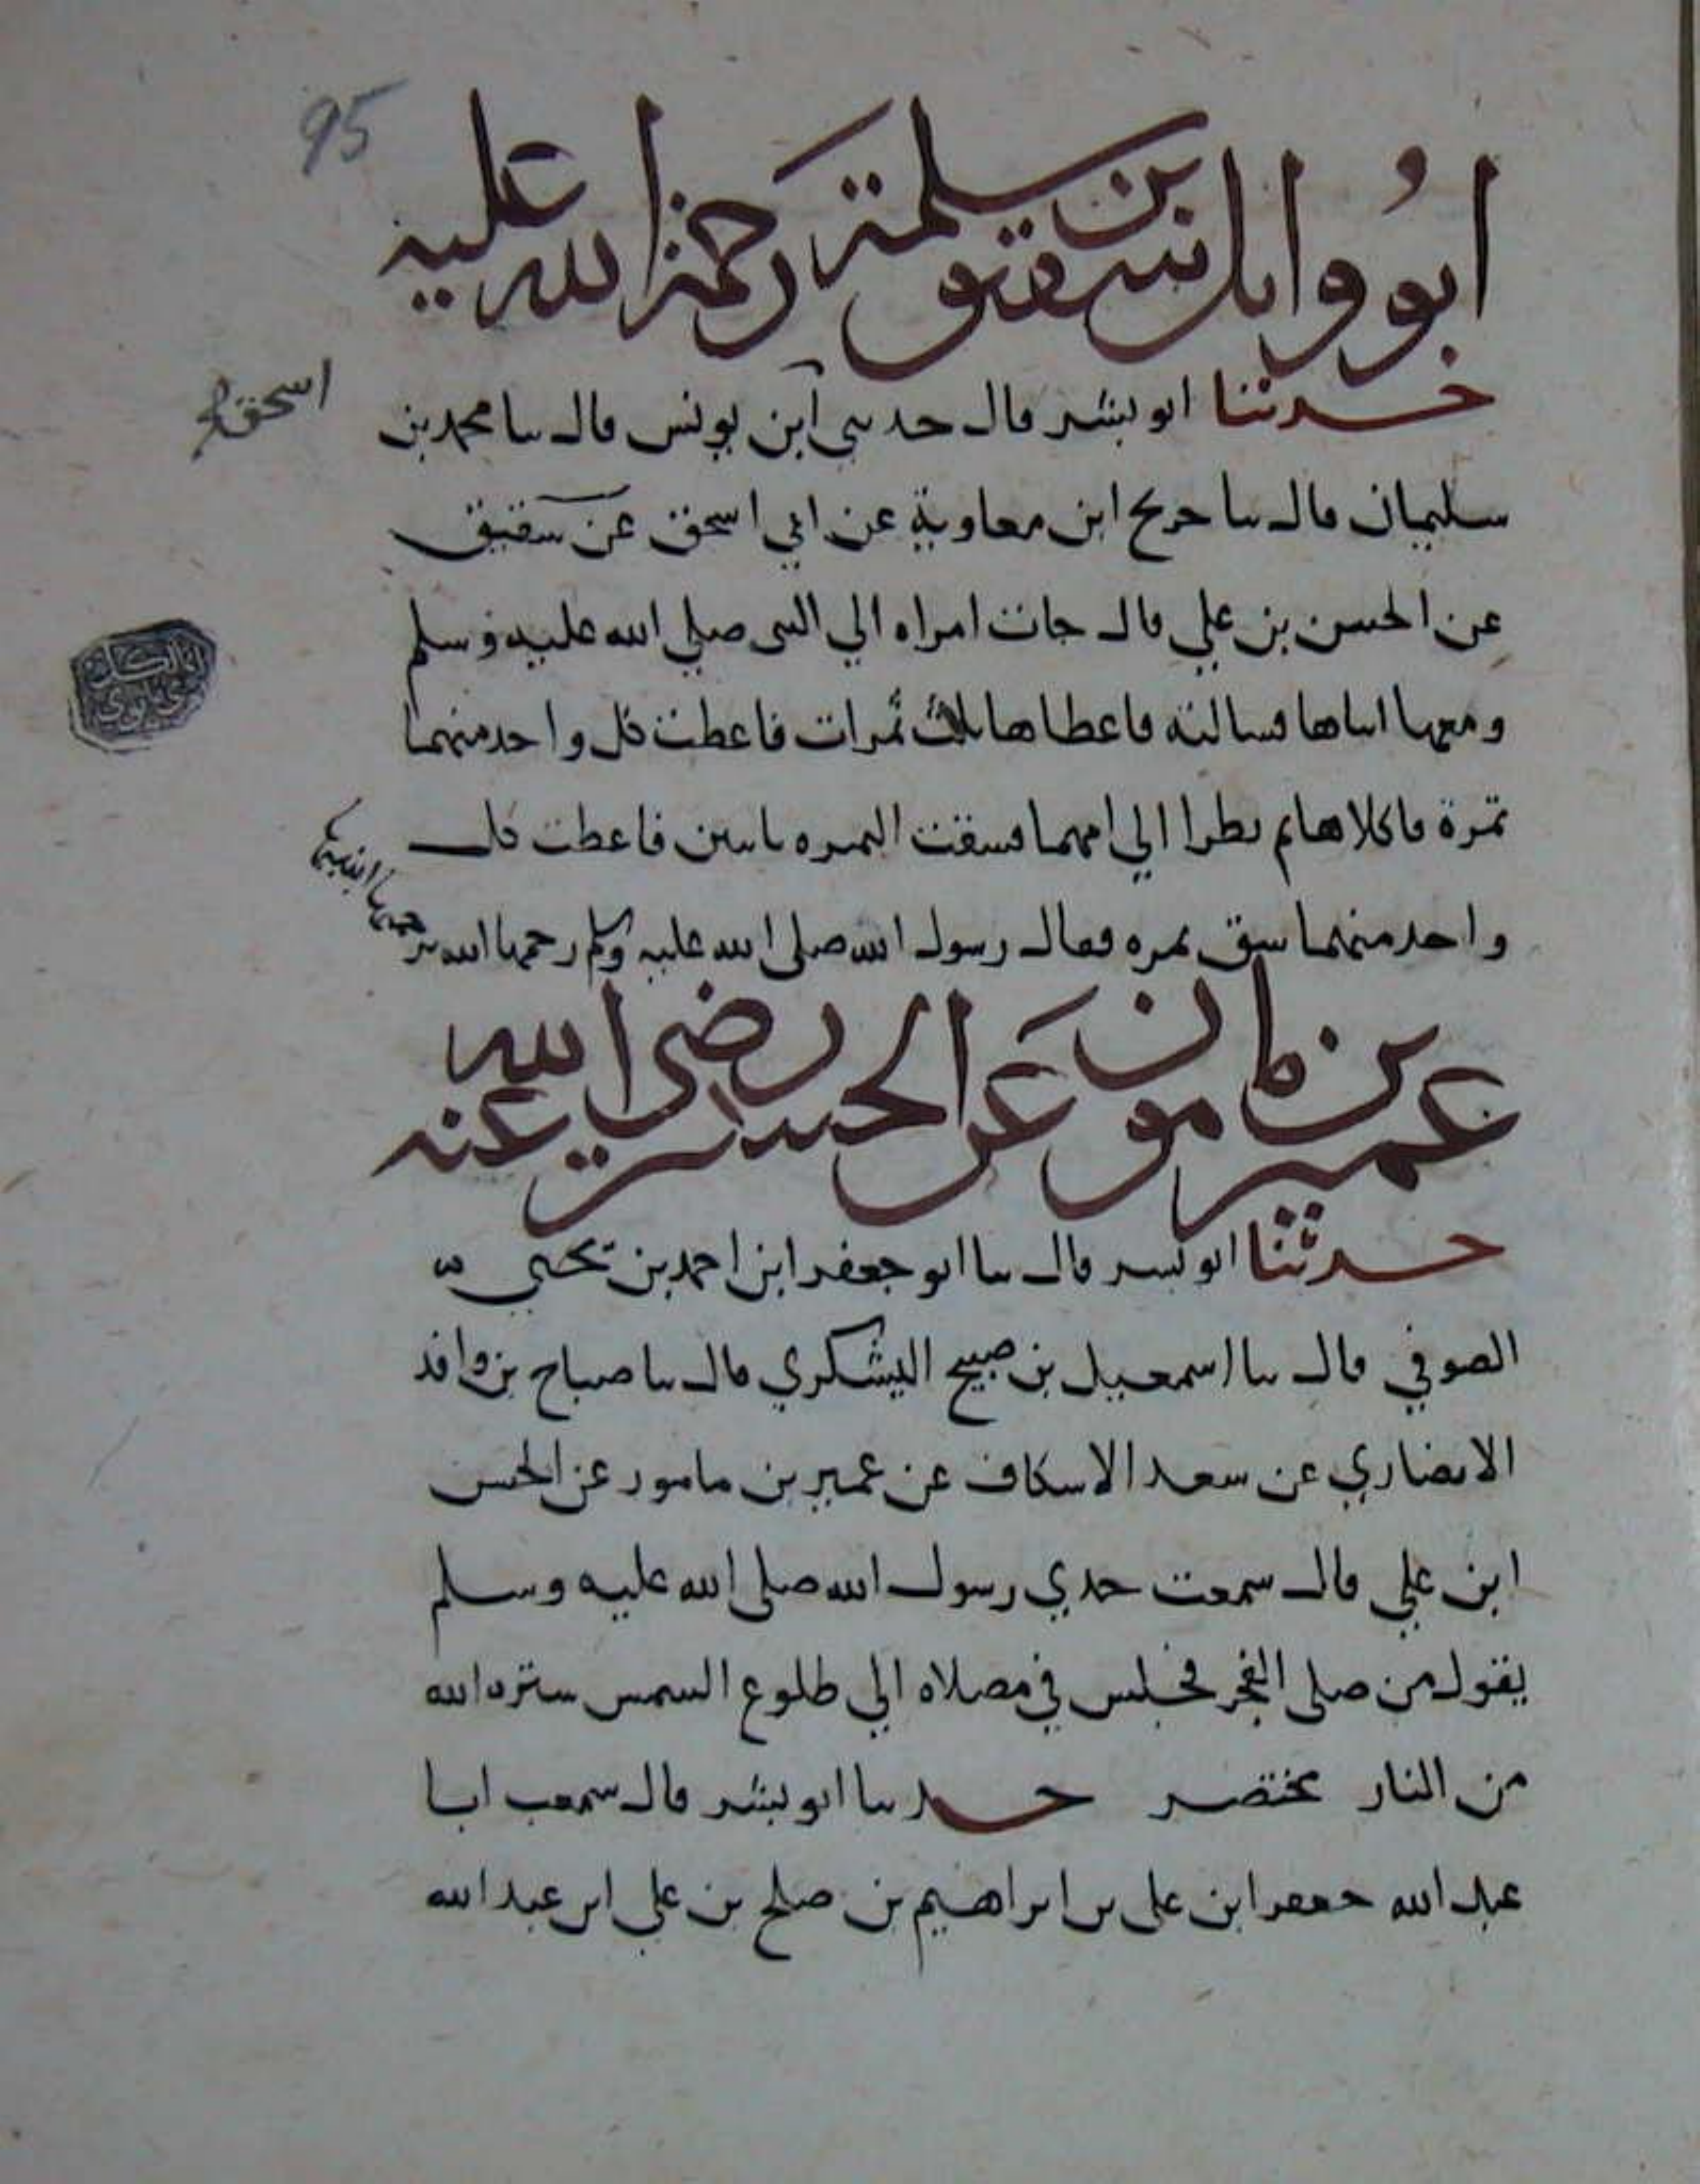 95
ابو وايل شقيق بن سلمة رحمة الله عليه
حدثنا ابو بشر قال حدثني ابن يونس قال سا محمد بن
اسحق
سليمان قال سا حديج ابن معاوية عن ابي اسحق عن سقيق
عن الحسن بن علي قال جات امراه الي النبى صلي الله عليه وسلم
ومعها ابناها فسالته فاعطاها ثلاث تمرات فاعطت كل واحد منهما
تمرة فاكلاها ثم نظرا الي امهما فسقت التمره باثنين فاعطت كل
واحد منهما سق تمره فقال رسول الله صلى الله عليه وسلم رحمها الله
برحمتها ابنيها
عمير بن مامون عن الحسن رضي الله عنه
حدثنا ابو بسر قال سا ابو جعفر ابن احمد بن يحيي
الصوفي قال سا اسمعيل بن صبيح اليشكري قال سا صباح بن وافد
الانصاري عن سعد الاسكاف عن عمير بن مامور عن الحسن
ابن علي قال سمعت جدي رسول الله صلى الله عليه وسلم
يقول من صلى الفجر فجلس في مصلاه الي طلوع السمس ستره الله
من النار مختصر حدثنا ابو بشر قال سمعت ابا
عبد الله جعفر ابن على بن ابراهيم بن صلح بن علي ابن عبد الله